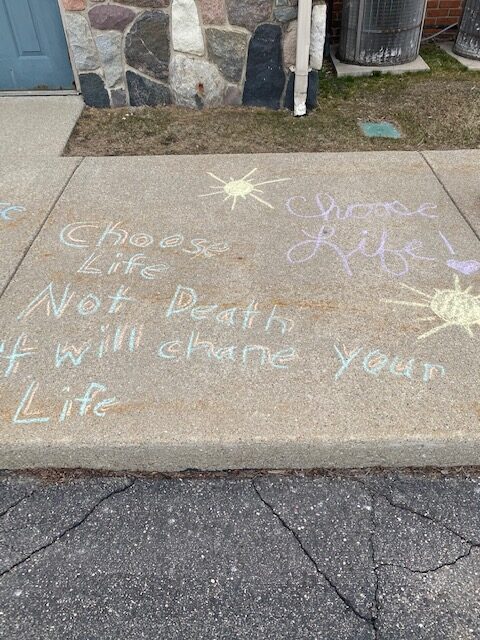 Choose
Life
Not Death
it will chane your
Life
Choose
Life!